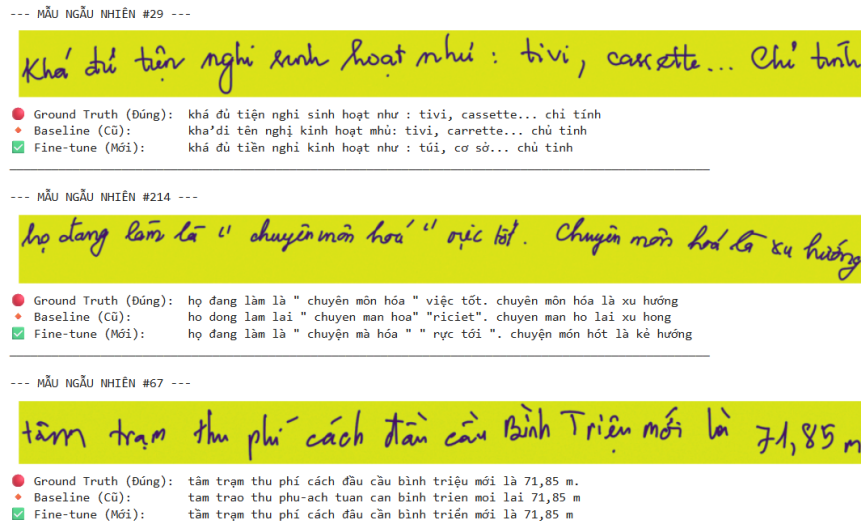 --- MẪU NGẪU NHIÊN #29 ---
Khá đủ tiện nghi sinh hoạt như : tivi, cassette... Chỉ tính
Ground Truth (Đúng): khá đủ tiện nghi sinh hoạt như : tivi, cassette... chỉ tính
Baseline (Cũ): kha’di tên nghị kinh hoạt mhủ: tivi, carrette... chủ tinh
Fine-tune (Mới): khá đủ tiền nghi kinh hoạt như : túi, cơ sở... chủ tinh
--- MẪU NGẪU NHIÊN #214 ---
họ đang làm là " chuyên môn hoá " việc tốt. Chuyên môn hoá là xu hướng
Ground Truth (Đúng): họ đang làm là " chuyên môn hóa " việc tốt. chuyên môn hóa là xu hướng
Baseline (Cũ): ho dong lam lai " chuyen man hoa" "riciet". chuyen man ho lai xu hong
Fine-tune (Mới): họ đang làm là " chuyện mà hóa " " rực tới ". chuyện món hót là kẻ hướng
--- MẪU NGẪU NHIÊN #67 ---
tâm trạm thu phí cách đầu cầu Bình Triệu mới là 71,85 m
Ground Truth (Đúng): tâm trạm thu phí cách đầu cầu bình triệu mới là 71,85 m.
Baseline (Cũ): tam trao thu phu-ach tuan can bình trien moi lai 71,85 m
Fine-tune (Mới): tầm trạm thu phí cách đâu cần bình triển mới là 71,85 m